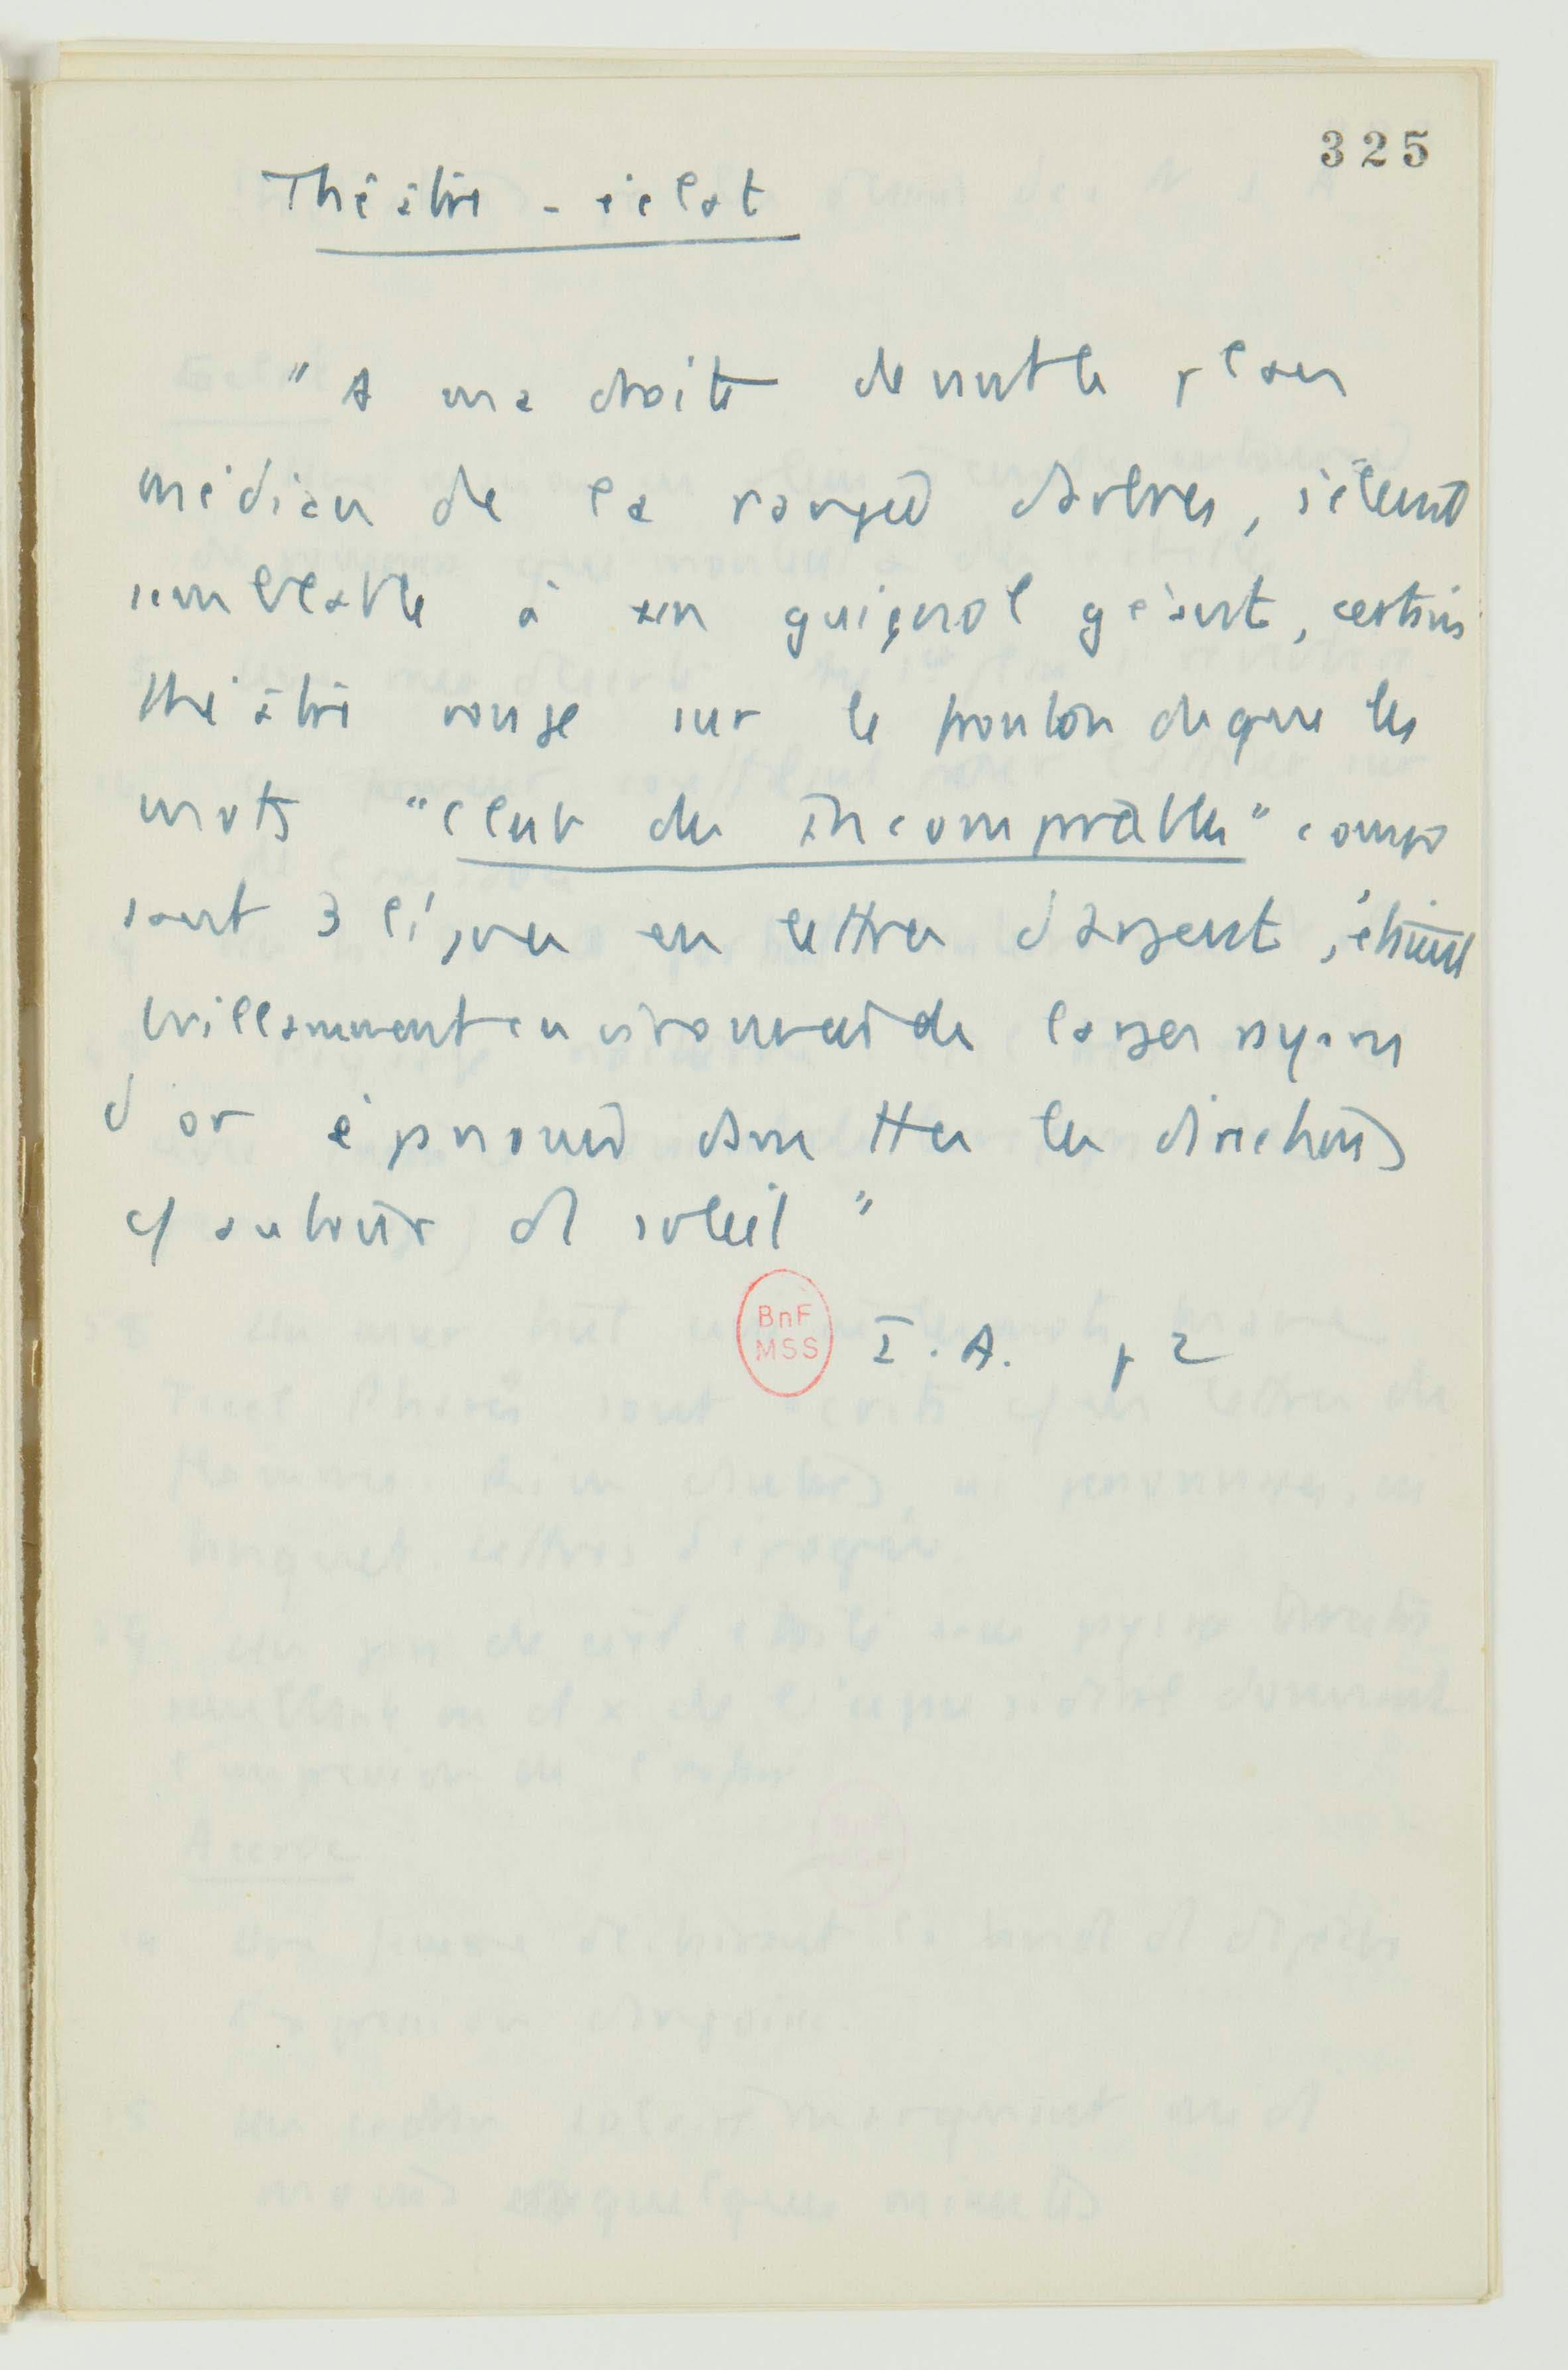 325
Théâtre - éclat
" A ma droite devant le plan
médian de la rangée d'arbres, s'élevait
semblable à un guignol géant, certain
théâtre rouge sur le fronton duquel les
mots "Club des Incomparables" compo
sant 3 lignes en lettres d'argent, étaient
brillamment environnés de larges rayons
d'or épanouis dans ttes les directions
c/ autour d soleil "
BnF
MSS
I. A. p 2